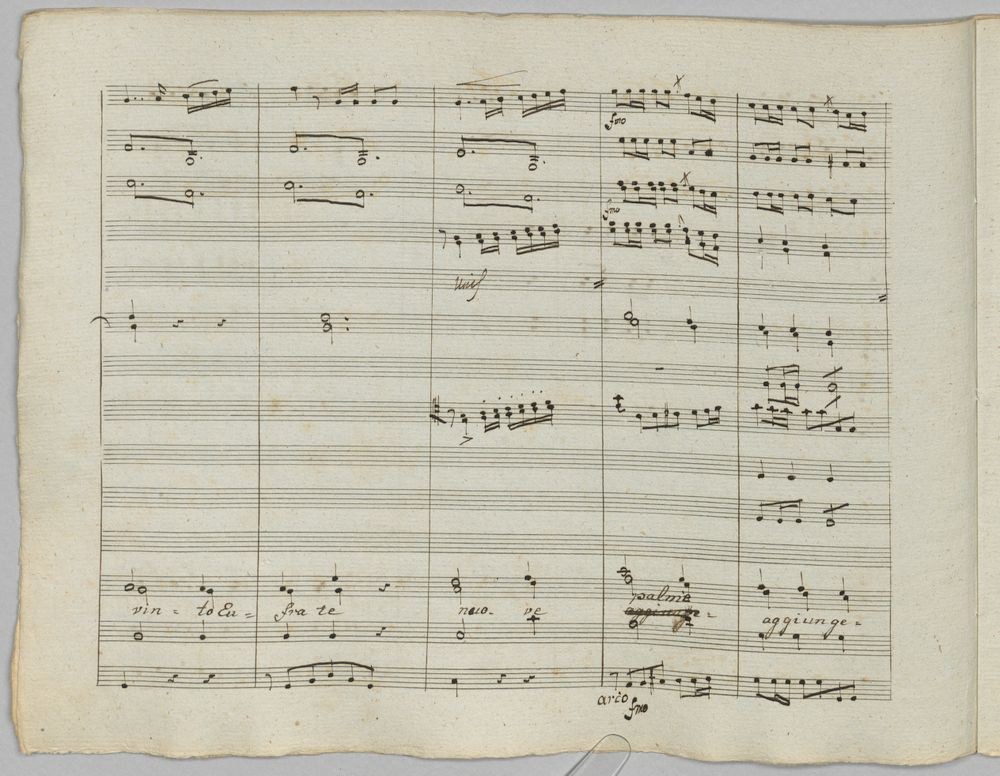 fmo
fmo
Unis
palme
vin - to Eu - fra te nuo - ve aggiunge - aggiunge -
arco
fmo